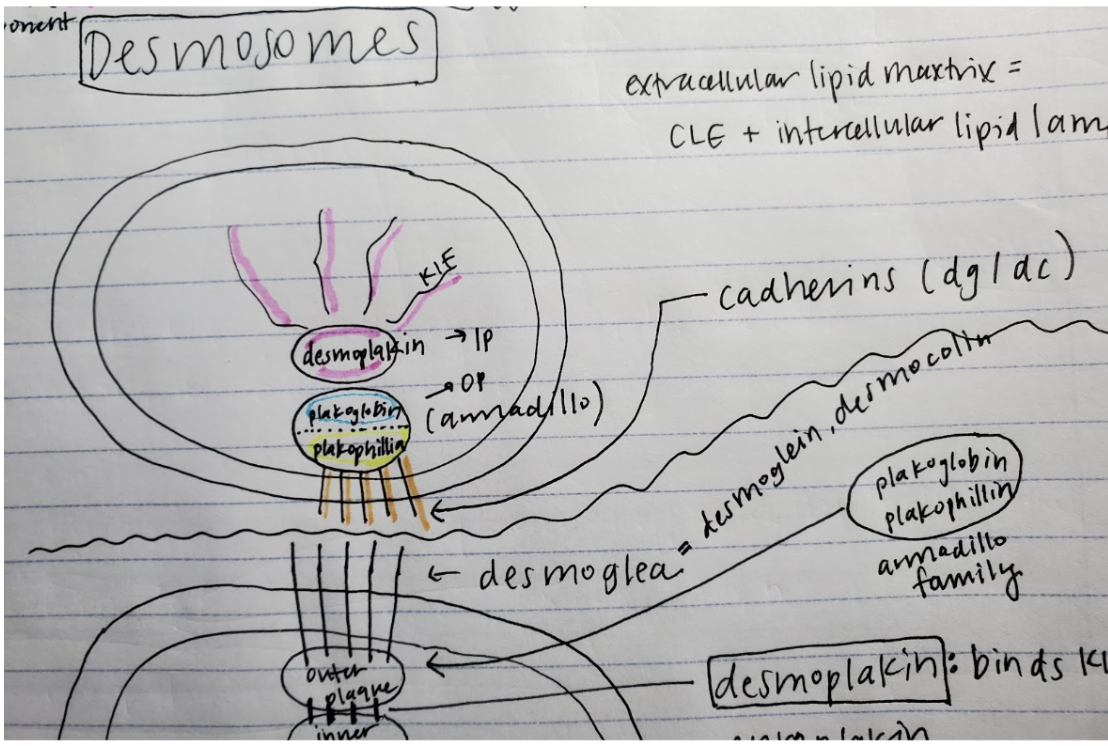 onent
Desmosomes
extracellular lipid maxtrix =
CLE + intercellular lipid lam
KIE
cadherins (dg/dc)
desmoplakin → IP
→ OP
plakoglobin (armadillo)
plakophillin
= desmoglein, desmocolin
plakoglobin
plakophillin
armadillo
family
← desmoglea
outer
plaque
inner
desmoplakin: binds KI